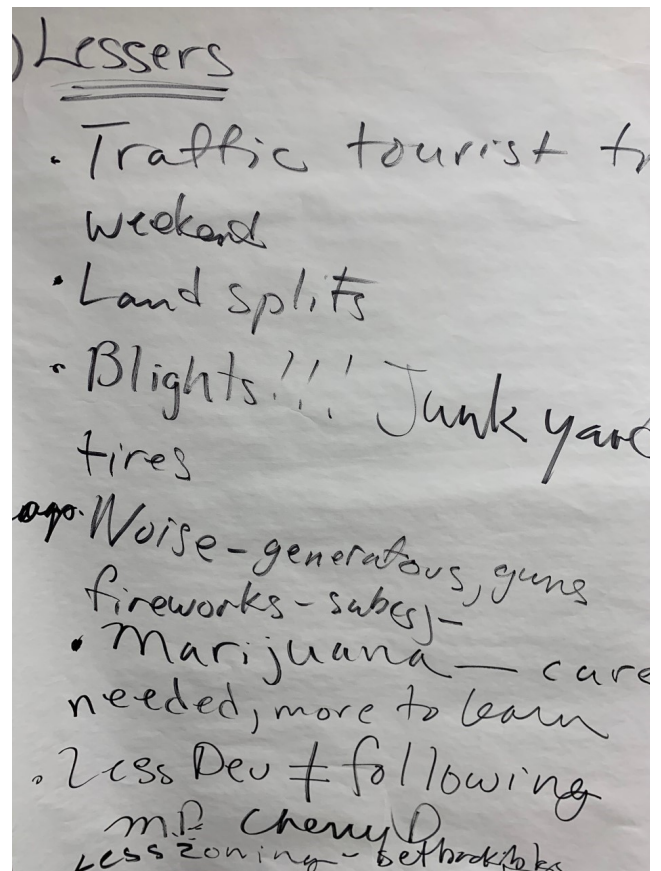 ) Lessers
• Traffic tourist tr
weekend
• Land splits
• Blights!!! Junk yard
tires
• Noise - generators, guns
fireworks -
• Marijuana — care
needed, more to learn
• Less Dev ≠ following
MP Cherry D
Less zoning -